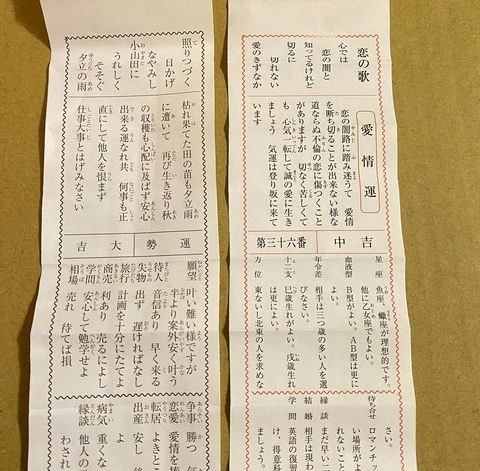 恋の歌
心では
恋の闇と
知ってるけれど
切るに
切れない
愛のきずなか
愛情運
恋の闇路に踏み迷うて 愛情
を断ち切ることが出来ない様な
道ならぬ不倫の恋に傷つくこと
がありますが 切なく苦しくて
も 心気一転して誠の愛に生き
ましょう 気運は登り坂に来て
います
中吉
第三十六番
星座 魚座、蠍座が理想的です。
他に乙女座でもよい。
血液型 B型がよい。AB型は更に
よい。
年令差 相手は三つ歳の多い人を選
びなさい。
十二支 巳歳生れがよい。戌歳生れ
は更によい。
方位 東ないし北東の人を求めな
さい。
待ち合せ ロマンチ
い場所がよ
れないこ
縁談 まだ早い二
結婚 相手は現わ
学問 英語の復習
け、得意科
ましょう。
照りつづく
日かげ
なやみし
小山田に
うれしく
そそぐ
夕立の雨
枯れ果てた田の苗も夕立雨
に遭いて 再び生き返り秋
の収穫も心配に及ばず安心
出来る運なれ共 何事も正
直にして他人を恨まず
仕事大事とはげみなさい
運勢
大吉
願望 叶い難い様ですが
半より案外安く叶う
待人 音信あり 早く来る
失物 出ず 遅ければなし
旅行 計画を十分にたてよ
商売 利あり 売るによし
学問 安心して勉学せよ
相場 売れ 待てば損
争事 勝つ
恋愛 愛情を
転居 よきと
出産 安し
よ
病気 重くな
縁談 他人の
わされ